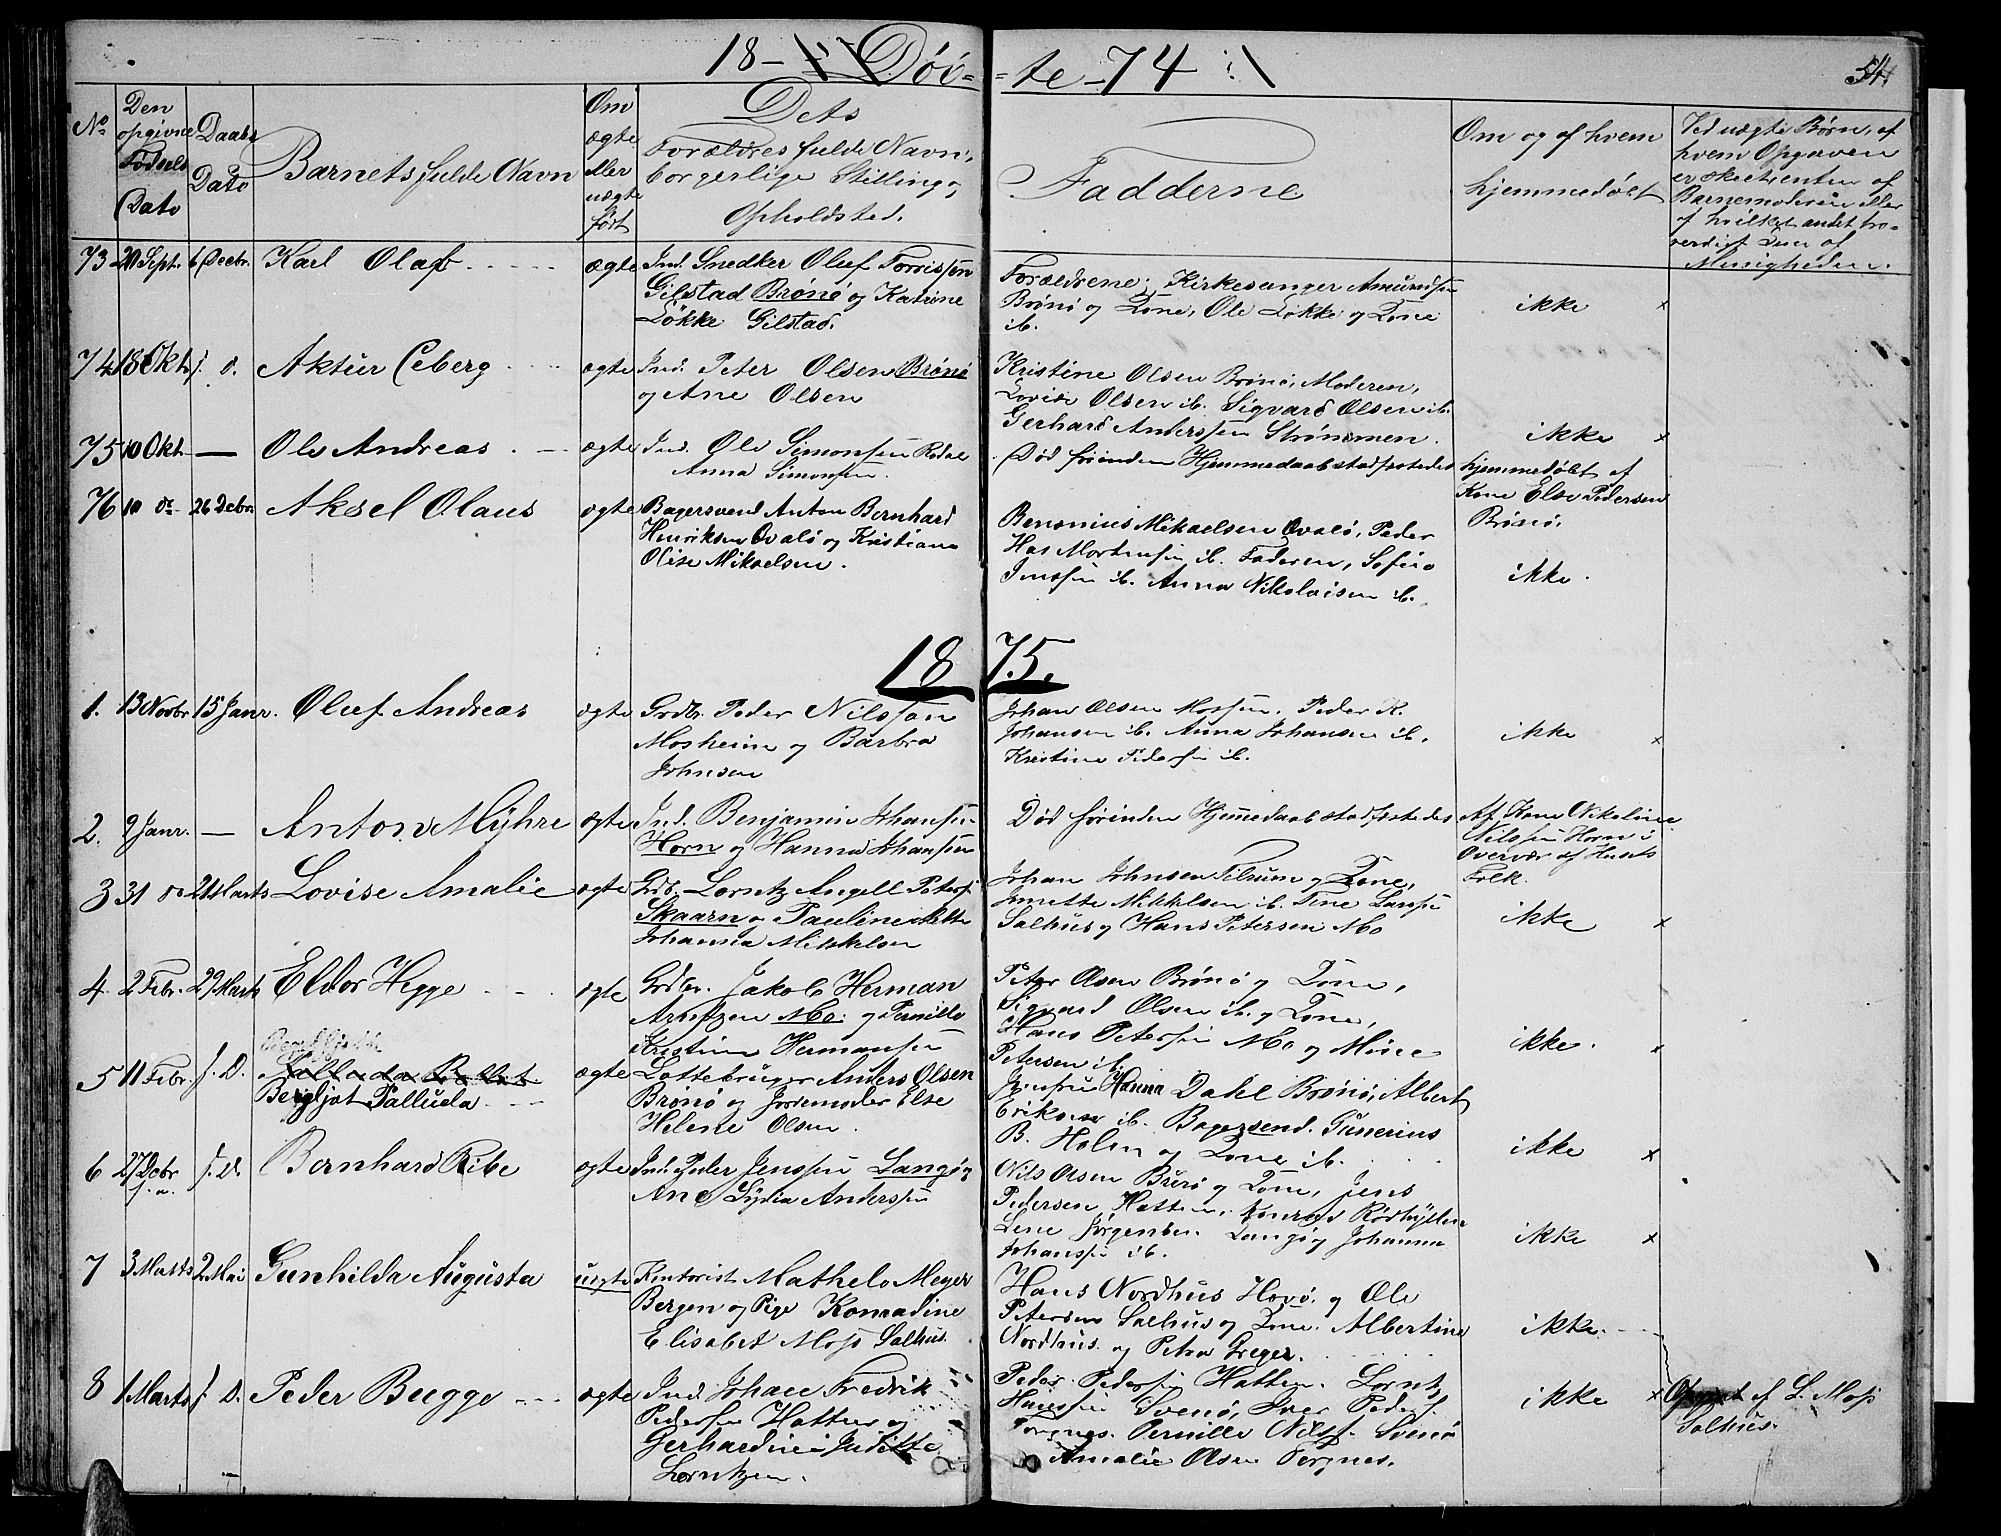 18- Døb= =te-74
54
No
Den opgivne Fødsels Dato
Daabs Dato
Barnets fulde Navn
Om ægte eller uægte født
Dets Forældres fulde Navn, borgerlige Stilling og Opholdsted.
Fadderne
Om og af hvem hjemmedøbt
Ved uægte Børn, af hvem Opgaven er Barnemoderen eller af hvilket andet troverdigt Lem af Menigheden.
73 20 Sept. 6 Decbr. Karl Olaf ægte Ind. Snedker Oluf Torrissen
Gilstad Brønø og Katrine
Løkke Gilstad.
Forældrene, Kirkesanger Amundsen
Brønø og Kone, Ole Løkke og Kone
ib.
ikke x
74 18 Okt. s. D. Aktur Ceberg ægte Ind. Peter Olsen Brønø
og Ane Olsen
Kristine Olsen Brønø, Moderen,
Lovise Olsen ib. Sigvard Olsen ib.
Gerhard Anderssen Strømmen.
ikke x
75 10 Okt. — Ole Andreas ægte Ind. Ole Simonsen Rodal
Anna Simonsen
Død forinden Hjemmedaab stadfæstedes
hjemmedøbt af
Kone Else Pedersen
Brønø.
76 10 do 26 Debr. Aksel Olaus ægte Bagersvend Anton Bernhard
Henriksen Qvalø og Kristiane
Olise Mikaelsen.
Benonius Mikaelsen Qvalø, Peder
Has Mortensen ib. Faderen, Sofie
Jenssen ib. Anna Nikolaisen ib.
ikke.
1875.
1. 13 Novbr. 15 Janr. Oluf Andreas ægte Grdbr. Peder Nilsson
Mosheim og Barbra
Johnsen
Johan Olsen Mosheim, Peder K.
Johansen ib. Anna Johansen ib.
Kristine Pedersen ib.
ikke x
2. 9 Janr. — Anton Myhre ægte Ind. Benjamin Johansen
Horn og Hanna Johansen
Død forinden Hjemmedaab stadfæstedes
Af Kone Nikoline
Nilssen Horn i
Overvær af Husets
Folk.
3 31 do 21 Marts Lovise Amalie ægte Grdb. Lorntz Angell Peters.
Skaarn og Pauline Mette
Johanna Mikkelsen
Johan Johnsen Tilrum og Kone,
Jmette Mikkelsen ib. Tine Larsen
Salhus og Hans Petersen Mo
ikke x
4. 2 Febr. 29 Marts Eldor Hegge ægte Grdbr. Jakob Herman
Arntzen Mo. og Pernille
Kristine Hermansen
Peter Olsen Brønø og Kone,
Sigvard Olsen ib. og Kone,
Hans Petersen Mo og Mine
Petersen ib.
ikke. x
5 11 Febr. s. D.
Bergljot Palluda
ægte Lottebruger Anders Olsen
Brønø og Jordemoder Else
Helene Olsen.
Jomfru Hanna Dahl Brønø, Albert
Eriksen ib. Bagersvend. Gunerius
B. Holm og Kone ib.
ikke x
6 27 Debr. f. a. s. D. Bernhard Ribe ægte Ind. Peder Jenssen Langø og
Ane Lydia Anderssen
Nils Olsen Burø og Kone, Jens
Pedersen Hatten, Konrad Rødhyllen
Lene Jørgensen Langø og Johanna
Johansen ib.
ikke x
7 3 Marts 2 Mai Gunhilda Augusta uægte Kontorist Mathelo Meyer
Bergen og Pige Konradine
Elisabet Moss Salhus.
Hans Nordhus Havø, og Ole
Petersen Salhus og Kone, Albertine
Nordhus. og Petra Greger.
ikke.
8 1 Marts s. D. Peder Bugge ægte Ind. Johan Fredrik
Pedersen Hatten og
Gerhardine Juditte
Lorntzen.
Peder Pedersen Hatten. Lorntz
Hanssen Svenø, Iver Peders.
Torgnes. Pernille Nilss. Svenø
Amalie Olsen Torgnes.
ikke x
af L. Moss
Salhus.